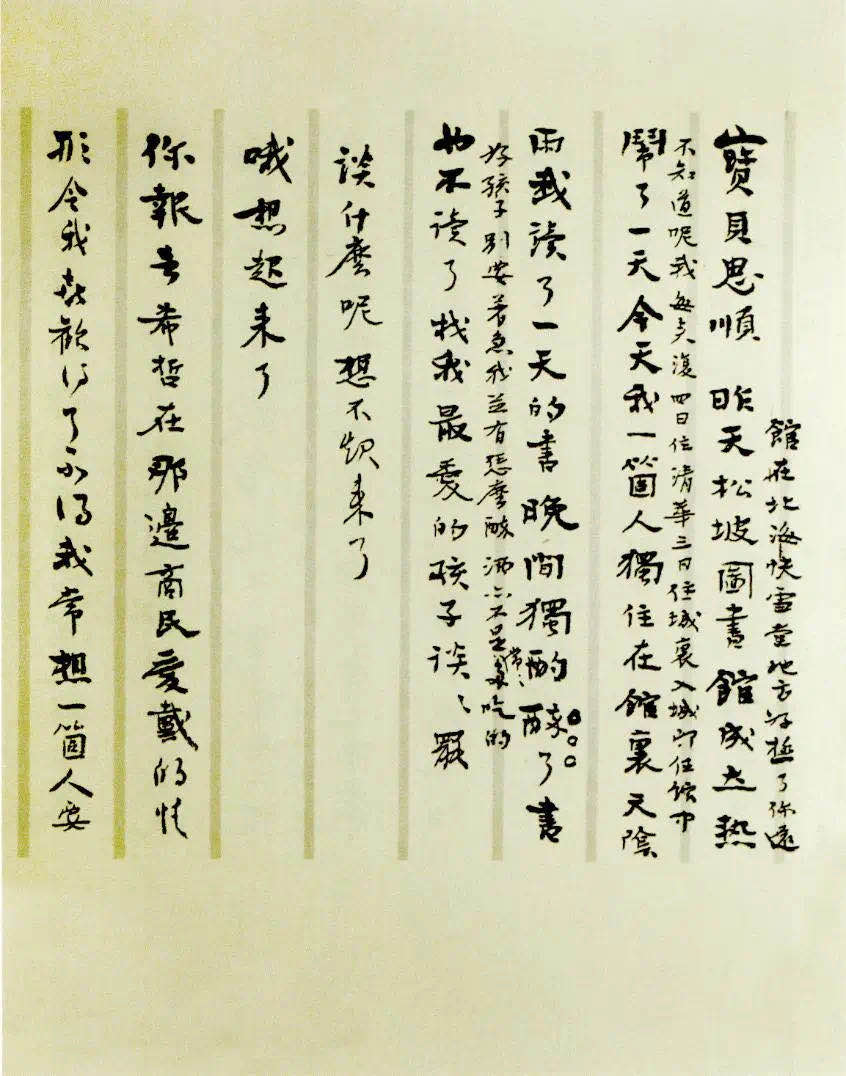 館在北海快雪堂地方好極了你還
寶貝思順 昨天松坡圖書館成立熱
不知道呢我每來復四日住清華三日住城裏入城即住館中
鬧了一天今天我一箇人獨住在館裏天陰
雨我讀了一天的書晚間獨酌醉了書
好孩子別要着急我並有怎麼醉酒亦不是常〻吃的
也不讀了找我最愛的孩子談〻罷
談什麼呢想不起來了
哦想起來了
你報告希哲在那邊商民愛戴的情
形令我喜歡得了不得我常想一箇人要